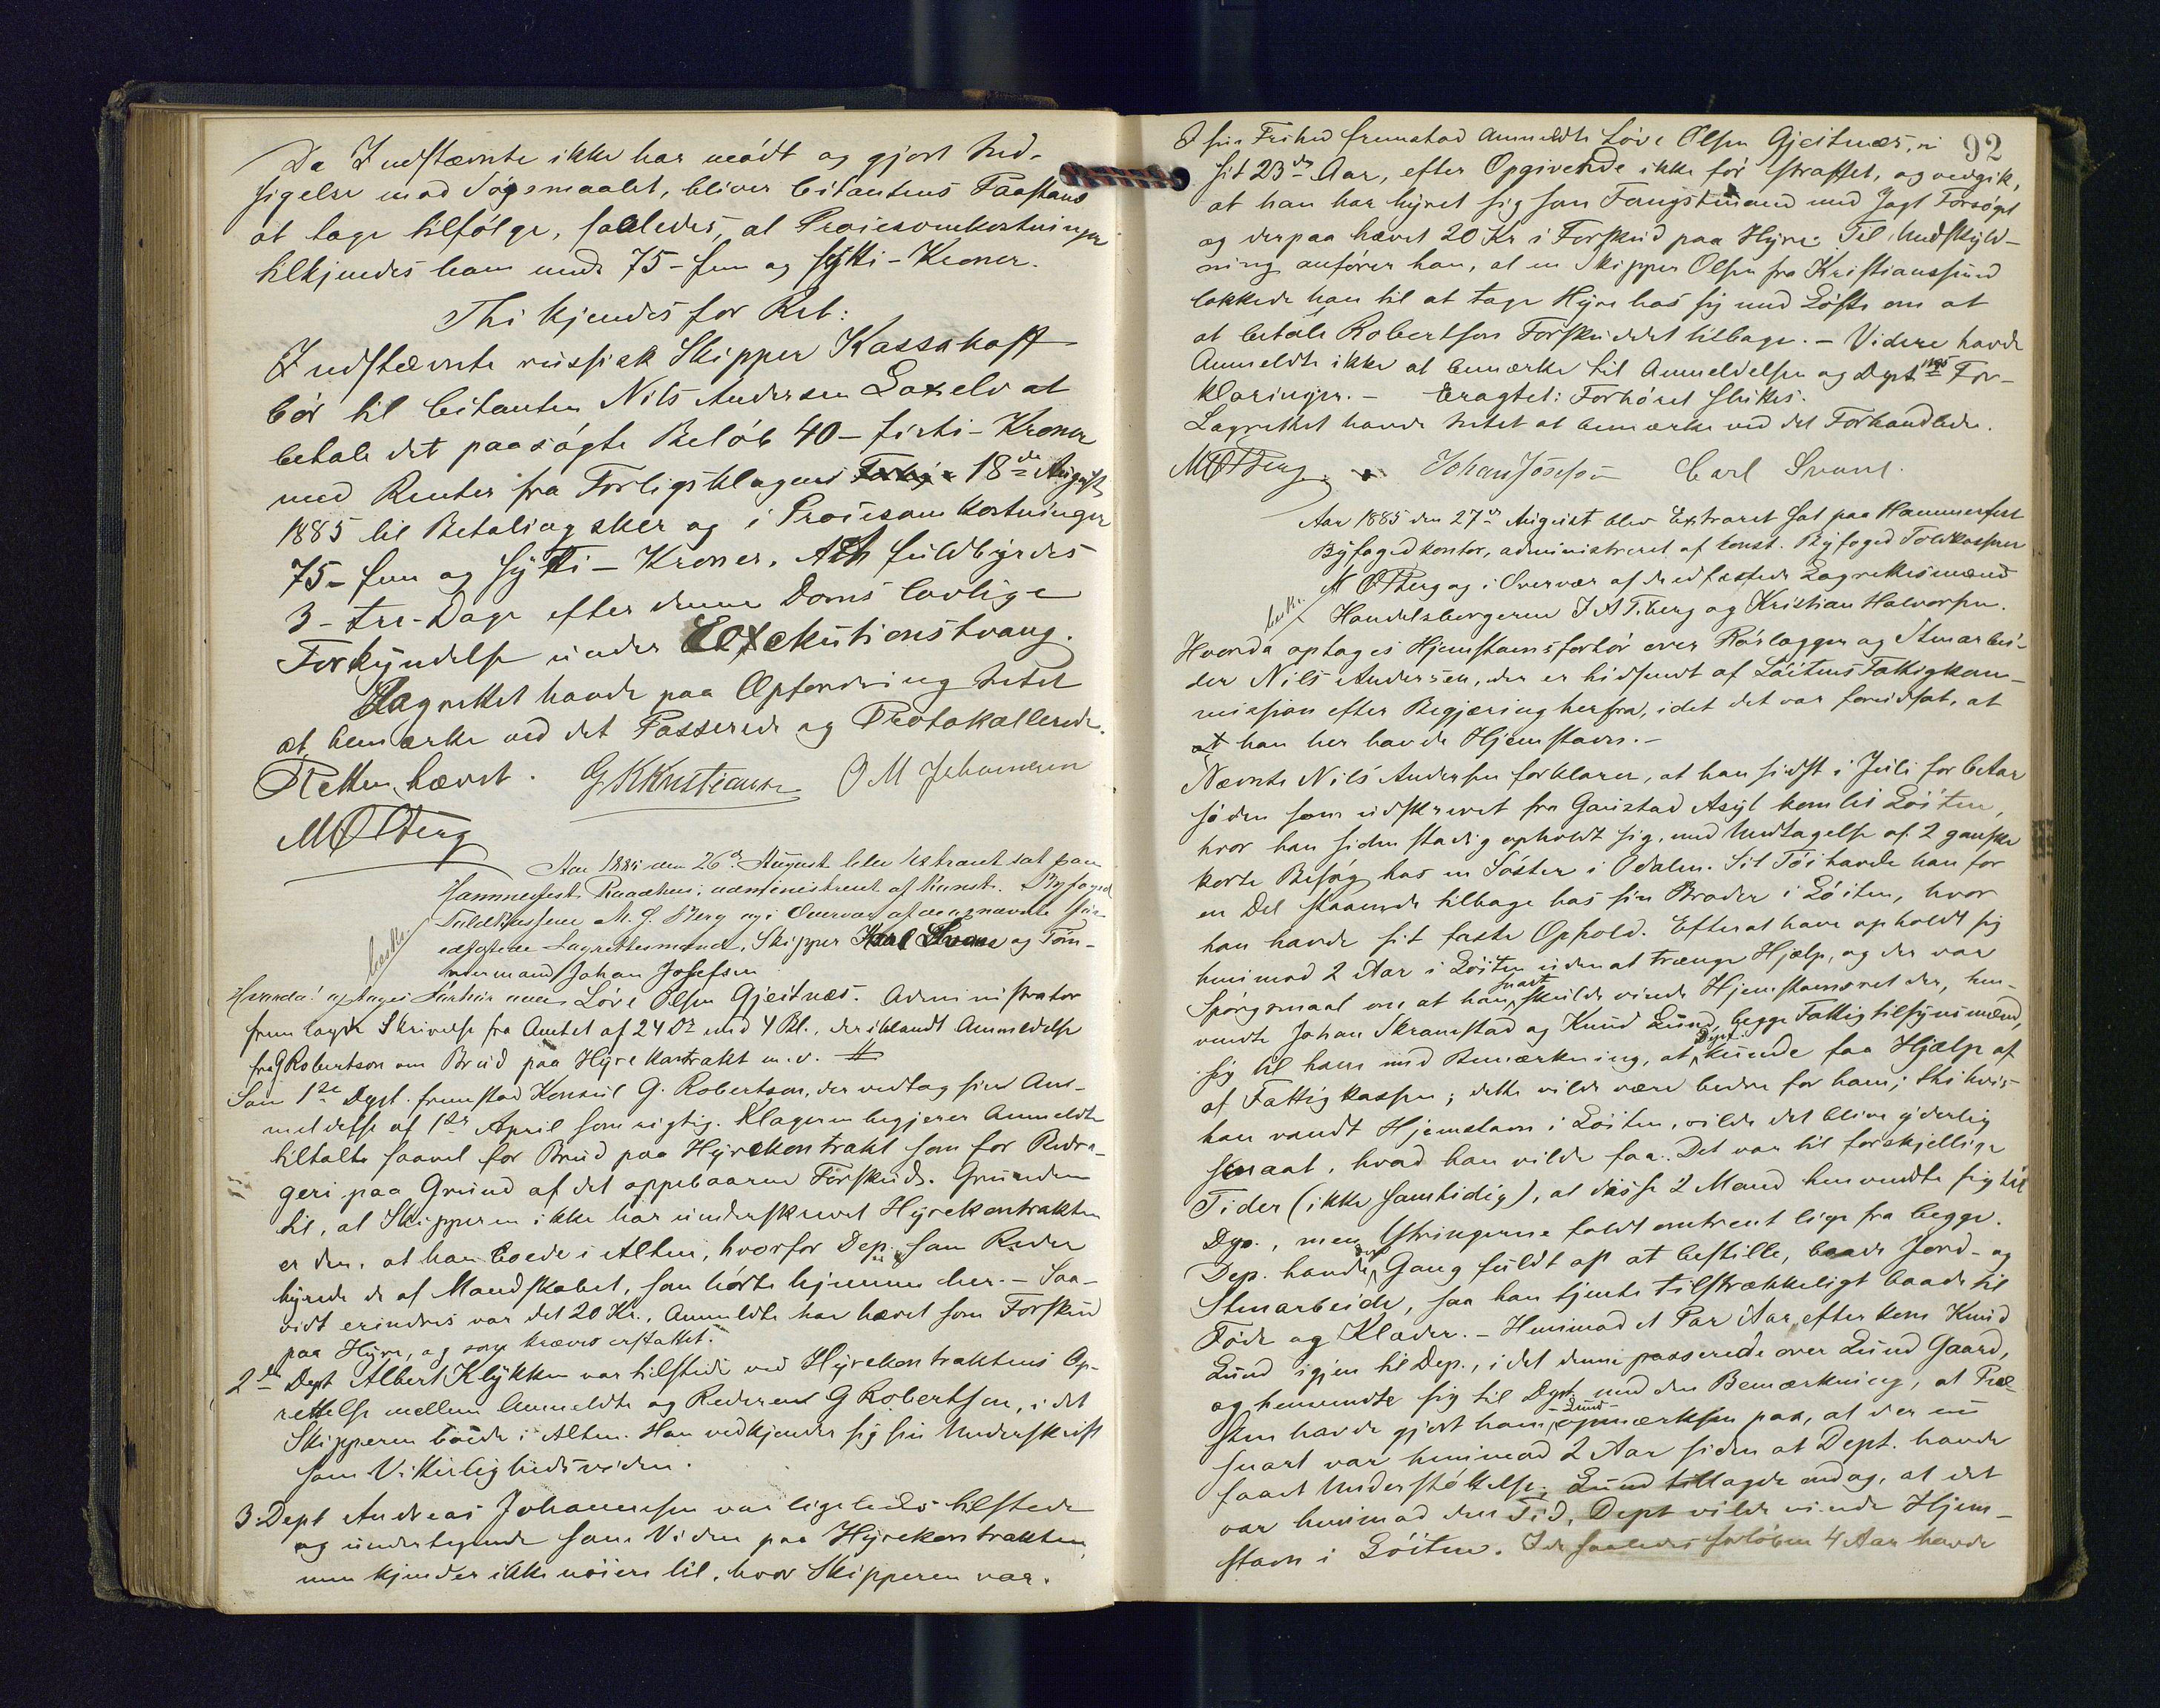 Da Indstævnte ikke har mødt og gjort Ind-
sigelse mod Søgsmaalet, bliver Citantens Paastand
at tage tilfølge, saaledes, at Procesomkostninger
tilkjendes ham med 75 - fem og sytti - Kroner.
Thi kjendes for Ret:
Indstævnte russisk Skipper Kassakoff
bør til Citanten Nils Andersen Laxelv at
betale det paasøgte Beløb 40 - firti - Kroner
med Renter fra Forligsklagens 18de August
1885 til Betaling sker og i Procesomkostninger
75 - fem og sytti - Kroner. Alt fuldbyrdes
3 - tre - Dage efter denne Doms lovlige
Forkyndelse under Exekutionstvang.
Lagrettet havde paa Opfordring Intet
at bemærke ved det Passerede og Protokollerede.
Retten hævet. G K Kristiansen O M Johannesen
M Ø Berg
Aar 1885 den 26de August blev Extraret sat paa
Hammerfest Raadhus, administreret af Konst. Byfoged
Toldkasserer M. Ø. Berg og i Overvær af de nævnte
edfæstede Lagrettesmænd, Skipper Karl Svane og Tøm-
mermand Johan Josefsen
Hvorda! optages Forhør over Løve Olsen Gjeitnæs. Administrator
fremlagde Skrivelse fra Amtet af 24 Ds med 4 Bl., deriblandt Anmeldelse
fra G Robertson om Brud paa Hyrekontrakt m.v.
Som 1ste Dept. fremstod Konsul G. Robertson, der vedtog sin An-
meldelse af 1ste April som rigtig. Klageren begjærer Anmeldte
tiltalt saavel for Brud paa Hyrekontrakt som for Bedra-
geri paa Grund af det oppebaarne Forskud. Grunden
til, at Skipperen ikke har underskrevet Hyrekontrakten
er den, at han boede i Alten, hvorfor Dep. som Reder
hyrede de af Mandskabet, som hørte hjemme her. - Saa-
vidt erindres var det 20 Kr., Anmeldte har hævet som Forskud
paa Hyre, og som kræves erstattet.
2de Dept Albert Klykken var tilstede ved Hyrekontraktens Op-
rettelse mellem Anmeldte og Rederen G Robertson, idet
Skipperen boede i Alten. Han vedkjender sig sin Underskrift
som Vitterlighedsvidne.
3. Dept Andreas Johannesen var ligeledes tilstede
og undertegnede som Vidne paa Hyrekontrakten,
men kjender ikke nøiere til, hvor Skipperen var.
92
I sin Frihed fremstod Anmeldte Løve Olsen Gjeitnæs, i
sit 23de Aar, efter Opgivende ikke før straffet, og vedgik,
at han har hyret sig som Fangstmand med Jagt Forsøget
og derpaa hævet 20 Kr i Forskud paa Hyre. Til Undskyld-
ning anfører han, at en Skipper Olsen fra Kristianssund
lokkede han til at tage Hyre hos sig med Løfte om at
at betale Robertson Forskuddet tilbage. - Videre havde
Anmeldte ikke at bemærke til Anmeldelsen og Depts For-
klaringer. - Eragtet: Forhøret sluttes.
Lagrettet havde Intet at bemærke ved det Forhandlede.
M Ø Berg. Johan Josefson Carl Svane.
Aar 1885 den 27de August blev Extraret sat paa Hammerfest
Byfogedkontor, administreret af konst. Byfoged Toldkasserer
M Ø Berg og i Overvær af de edfæstede Lagrettesmænd
Handelsborgerne J A Tiberg og Kristian Halvorsen.
Hvorda optages Hjemstavnsforhør over Rørlægger og Stenarbei-
der Nils Andersen, der er hidsendt af Løitens Fattigkom-
mission efter Begjæring herfra, idet det var forudsat, at
at han her havde Hjemstavn. -
Nævnte Nils Andersen forklarer, at han sidst i Juli for 6 Aar
siden som udskrevet fra Gaustad Asyl kom til Løiten,
hvor han siden stadig opholdt sig, med Undtagelse af 2 ganske
korte Besøg hos en Søster i Odalen. Sit Tøi havde han for
en Del staaende tilbage hos sin Broder i Løiten, hvor
han havde sit faste Ophold. Efter at have opholdt sig
henimod 2 Aar i Løiten uden at trænge Hjælp, og der var
Spørgsmaal om at han snart skulde vinde Hjemstavnsret der, hen-
vendte Johan Skramstad og Knud Lund, begge Fattigtilsynsmænd,
sig til ham med Bemærkning, at Dept. kunde faa Hjælp af
af Fattigkassen; dette vilde være bedre for ham; thi hvis
han vandt Hjemstavn i Løiten, vilde det blive yderlig
smaat, hvad han vilde faa. Det var til forskjellige
Tider (ikke samtidig), at disse 2 Mænd henvendte sig til
Dep., men Ytringerne faldt omtrent lige fra begge.
Dep. havde den Gang fuldt op at bestille, baade Jord- og
Stenarbeide, saa han tjente tilstrækkeligt baade til
Føde og Klæder. - Henimod et Par Aar efter kom Knud
Lund igjen til Dep., idet denne passerede over Lund Gaard,
og henvendte sig til Dept. med den Bemærkning, at Præ-
sten havde gjort ham - Lund - opmærksom paa, at der nu
snart var henimod 2 Aar siden at Dept. havde
faaet Understøttelse; Lund tillagde endog, at det
var henimod den Tid, Dept vilde vinde Hjem-
stavn i Løiten. I de saaledes forløbne 4 Aar havde